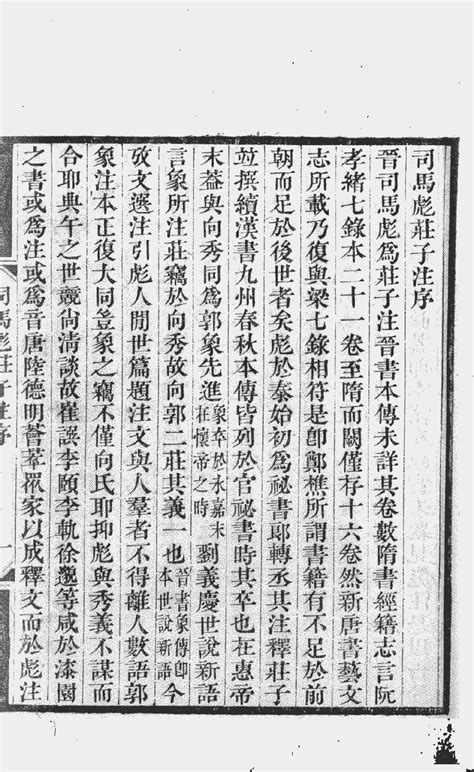 司馬彪莊子注序
晉司馬彪爲莊子注晉書本傳未詳其卷數隋書經籍志言阮
孝緒七錄本二十一卷至隋而闕僅存十六卷然新唐書藝文
志所載乃復與梁七錄相符是卽鄭樵所謂書籍有不足於前
朝而足於後世者矣彪於泰始初爲祕書郞轉丞其注釋莊子
竝撰續漢書九州春秋本傳皆列於官祕書時其卒也在惠帝
末葢與向秀同爲郭象先進象卒於永嘉末在懷帝之時劉義慶世說新語
言象所注莊竊於向秀故向郭二莊其義一也晉書象傳卽本世說新語今
攷文選注引彪人閒世篇題注文與人羣者不得離人數語郭
象注本正復大同豈象之竊不僅向氏耶抑彪與秀義不謀而
合耶典午之世競尙淸談故崔譔李頤李軌徐邈等咸於漆園
之書或爲注或爲音唐陸德明薈萃眾家以成釋文而於彪注
司馬彪莊子注序
一